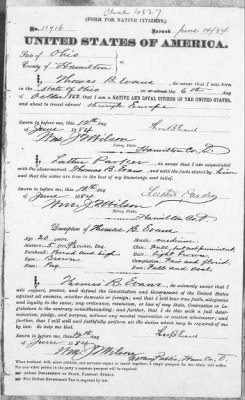 (FORM FOR NATIVE CITIZENS.)
No. 11916 Issued June 14/84
UNITED STATES OF AMERICA.
State of Ohio
County of Hamilton
I, Thomas B. Evans, do swear that I was born
in the State of Ohio on or about the 6th day
of October; that I am a NATIVE AND LOYAL CITIZEN OF THE UNITED STATES,
and about to travel abroad through Europe
Sworn to before me, this 12th day
of June 1884
Wm. J. Wilson
Notary Public
Hamilton Co, O.
I, Luther Parker, do swear that I am acquainted
with the above-named Thomas B. Evans, and with the facts stated by him
and that the same are true to the best of my knowledge and belief.
Sworn to before me, this 12th day
of June 1884
Luther Parker
Wm. J. Wilson
Notary Public
Hamilton Co O
Description of Thomas B. Evans
Age: years.
Mouth: medium
Stature: 5 feet inches, Eng.
Chin:
Forehead: broad and high
Hair: Light brown
Eyes: Brown
Complexion: Fair and florid
Nose:
Face: Full and oval
I, Thomas B. Evans, do solemnly swear that I
will support, protect, and defend the Constitution and Government of the United States
against all enemies, whether domestic or foreign; and that I will bear true faith, allegiance
and loyalty to the same, any ordinance, resolution, or law of any State, Convention or Legislature
to the contrary notwithstanding; and further, that I do this with a full determination,
pledge, and purpose, without any mental reservation or evasion whatsoever; and
further, that I will well and faithfully perform all the duties which may be required of me
by law. So help me God.
Sworn to before me, this 12th day
of June 1884
Wm. J. Wilson
Notary Public, Hamilton, O